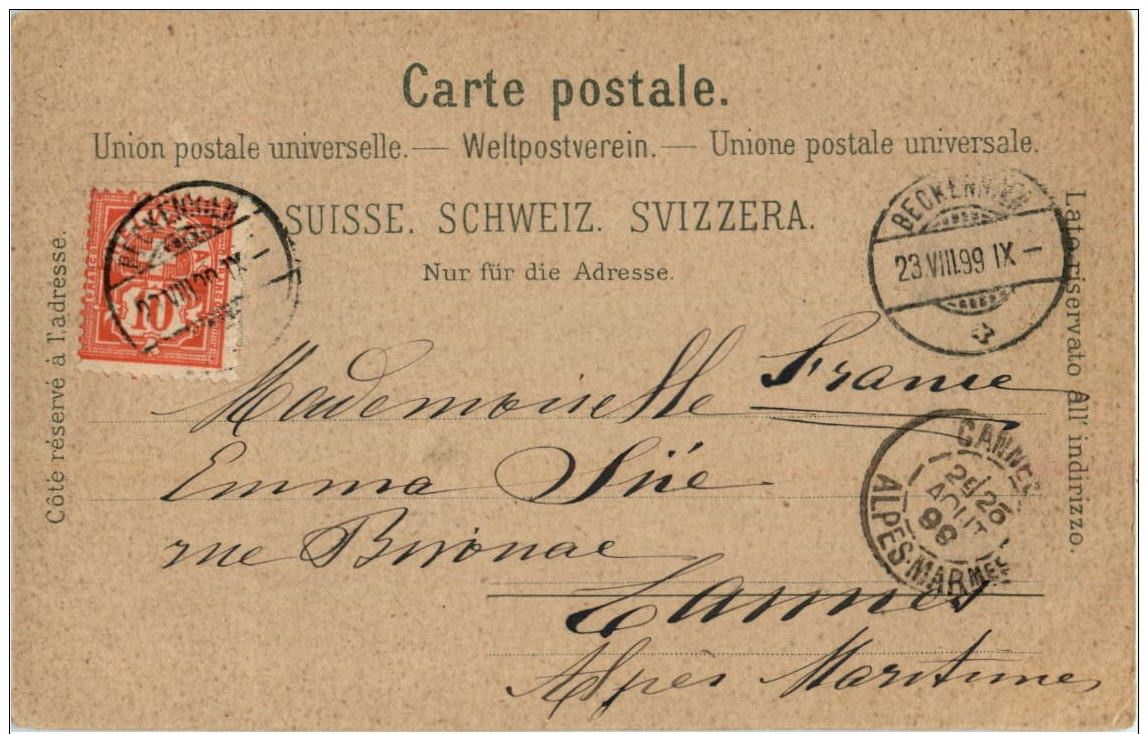 Carte postale.
Union postale universelle. — Weltpostverein. — Unione postale universale.
SUISSE. SCHWEIZ. SVIZZERA.
Nur für die Adresse.
Côté réservé à l'adresse.
Lato riservato all' indirizzo.
FRANCO
10
BECKENRIED
23.VIII.99 IX
CANNES
AOUT
99
ALPES-MARMES
Mademoiselle France
Emma
rue
Cannes
Alpes Maritimes